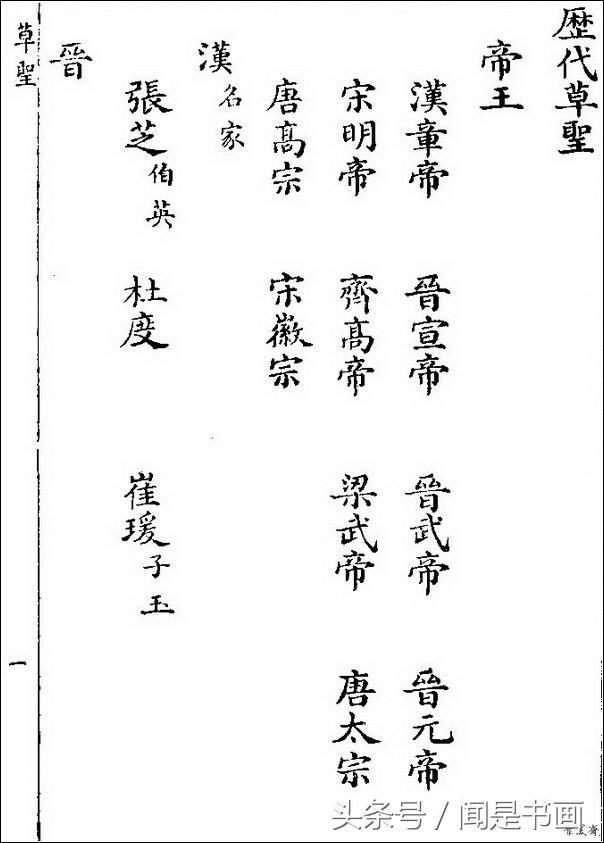 歷代草聖
帝王
漢章帝 晉宣帝 晉武帝 晉元帝
宋明帝 齊髙帝 梁武帝 唐太宗
唐髙宗 宋徽宗
漢名家
張芝伯英 杜度 崔瑗子玉
晉
草聖 一
头条号 / 闻是书画